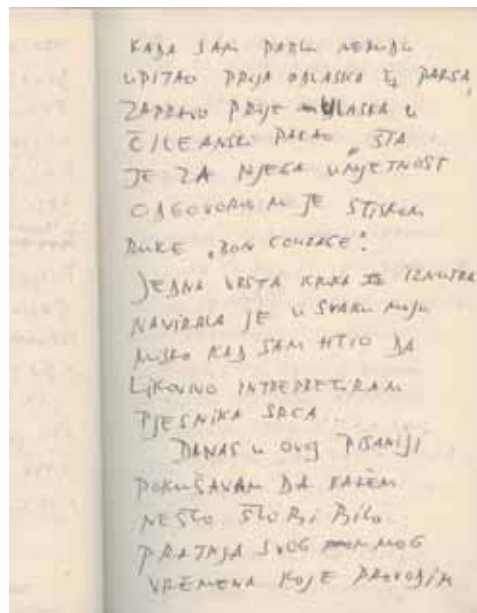 KADA SAM PABLU NERUDU
UPITAO PRIJE ODLASKA IZ PARISA,
ZAPRAVO PRIJE ULASKA U
ČILEANSKI PAKAO, ŠTA
JE ZA NJEGA UMJETNOST
ODGOVORIO MI JE STISKOM
RUKE „BON COURAGE".
JEDNA VRSTA KRIKA IZNUTRA
NAVIRALA JE U SVAKU MOJU
MISAO KAD SAM HTIO DA
LIKOVNO INTERPRETIRAM
PJESNIKA SRCA...
DANAS U OVOJ PISANIJI
POKUŠAVAM DA KAŽEM
NEŠTO ŠTO BI BILO
PRATNJA SVOG
VREMENA KOJE PROVODIM